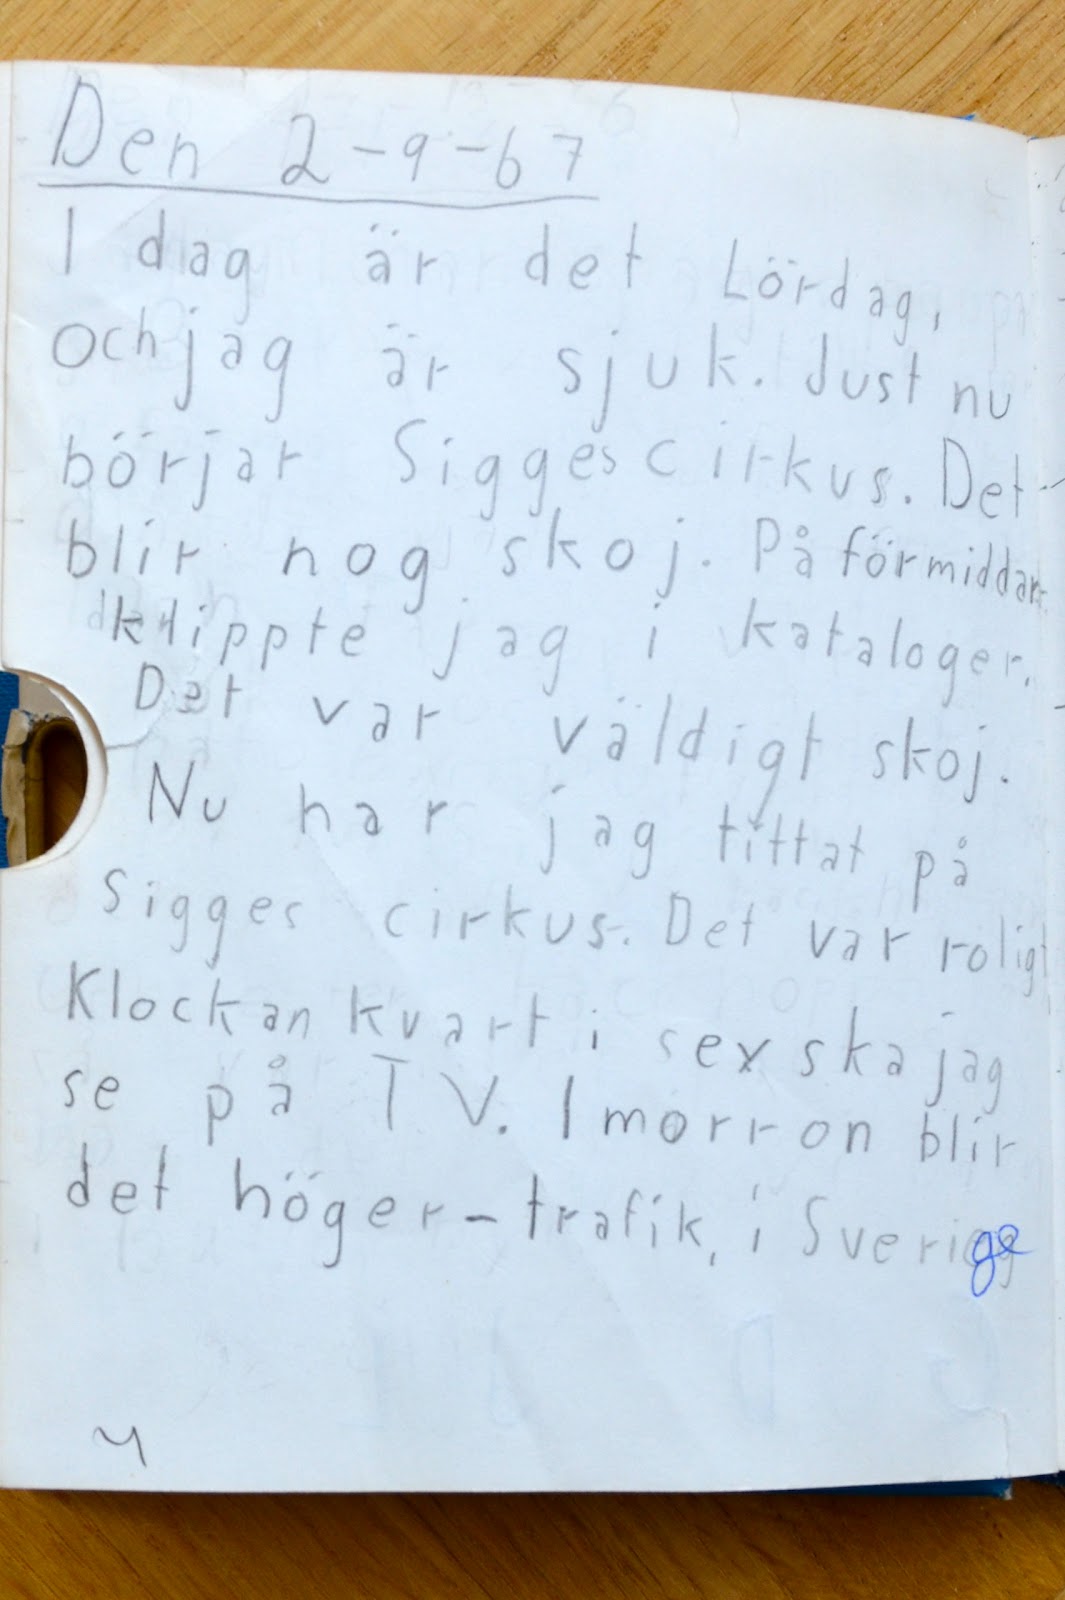 Den 2-9-67
I dag är det Lördag,
och jag är sjuk. Just nu
börjar Sigges cirkus. Det
blir nog skoj. På förmiddan
klippte jag i kataloger.
Det var väldigt skoj.
Nu har jag tittat på
Sigges cirkus. Det var roligt
Klockan kvart i sex ska jag
se på TV. I morron blir
det höger-trafik, i Sverige
4